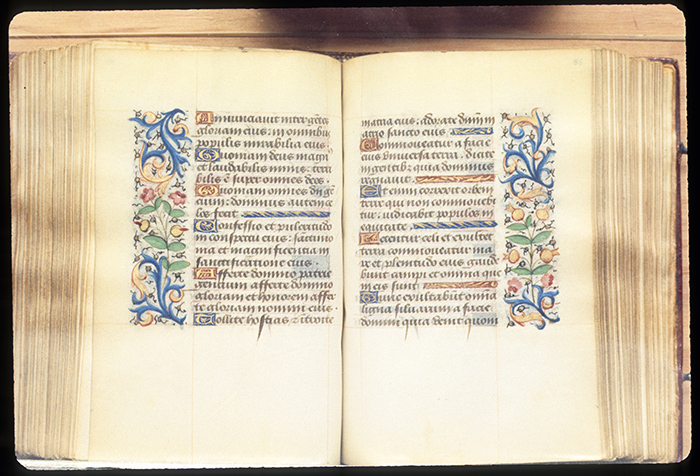 Annunciavit inter gētes
gloriam eius: in omnibus
populis mirabilia eius
Quoniam deus magn
et laudabilis nimis: terri
bilis ē super omnes deos.
Quoniam omnes dii gē
cium: dominus autem ce
los fecit
Confessio et pulcritudo
in conspectu eius: sanctimo
nia et magnificentia in
sanctificatione eius.
Afferte domino patrie
gentium afferte domino
gloriam et honorem affer
te gloriam nomini eius
Tollite hostias et introite
in atria eius: adorate dūm in
atrio sancto eius
Commoveatur a facie
eius universa terra: dicite
in gentibus quia dominus
regnavit
Etenim correxit orbem
terre qui non commovebi
tur: iudicabit populos in
equitate
Letentur celi et exultet
terra commoveatur mar
re et plenitudo eius gaude
bunt campi et omnia que
in eis sunt
Tunc exultabunt omnia
ligna silvarum a facie
domini quia venit quoni